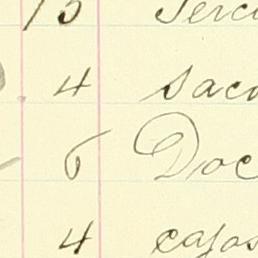 15 Terci
4 saco
6 Doc
4 cajas